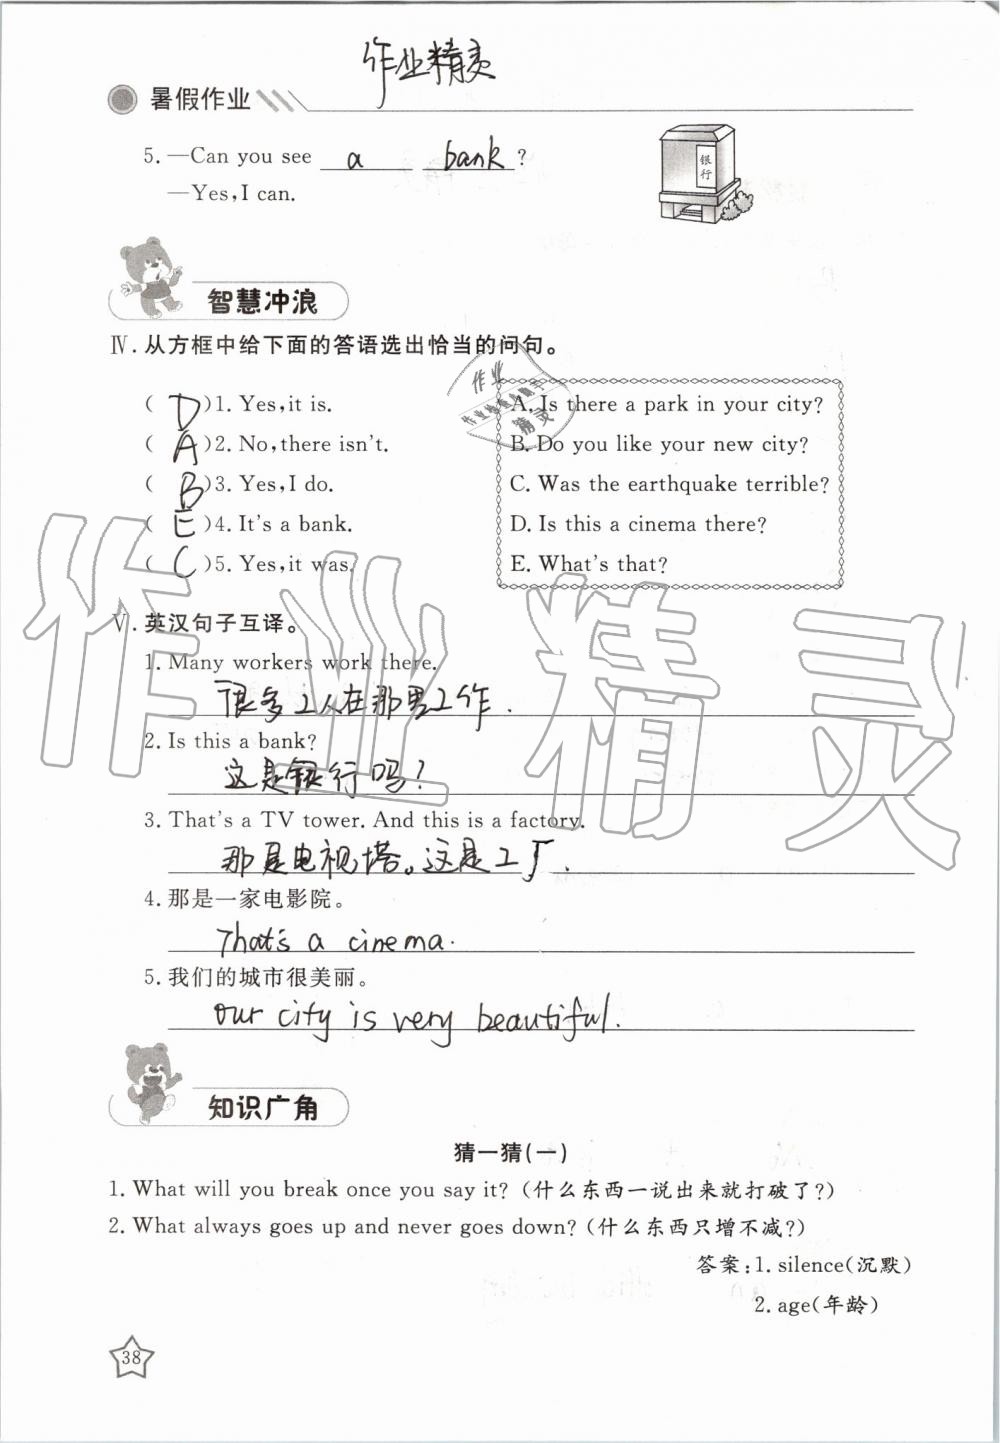 作业精灵
暑假作业
5. —Can you see a bank?
银行
—Yes, I can.
智慧冲浪
Ⅳ. 从方框中给下面的答语选出恰当的问句。
( D )1. Yes, it is.
( A )2. No, there isn't.
( B )3. Yes, I do.
( E )4. It's a bank.
( C )5. Yes, it was.
A. Is there a park in your city?
B. Do you like your new city?
C. Was the earthquake terrible?
D. Is this a cinema there?
E. What's that?
作业
精灵
作业精灵
Ⅴ. 英汉句子互译。
1. Many workers work there.
很多工人在那里工作.
2. Is this a bank?
这是银行吗?
3. That's a TV tower. And this is a factory.
那是电视塔。这是工厂.
4. 那是一家电影院。
That's a cinema.
5. 我们的城市很美丽。
Our city is very beautiful.
知识广角
猜一猜(一)
1. What will you break once you say it? (什么东西一说出来就打破了?)
2. What always goes up and never goes down? (什么东西只增不减?)
答案:1. silence(沉默)
2. age(年龄)
38